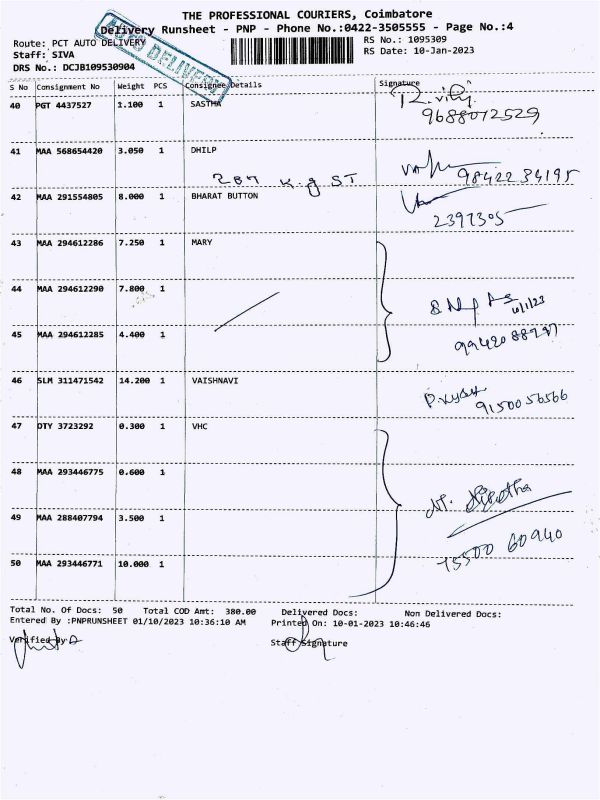 THE PROFESSIONAL COURIERS, Coimbatore
Delivery Runsheet - PNP - Phone No.:0422-3505555 - Page No.:4
Route: PCT AUTO DELIVERY
RS No.: 1095309
Staff: SIVA
RS Date: 10-Jan-2023
DRS No.: DCJB109530904
AUTO DELIVERY
S No Consignment No Weight PCS Consignee Details Signature
40 PGT 4437527 1.100 1 SASTHA
9688072529
41 MAA 568654420 3.050 1 DHILP
287 K.g ST 98422 34195
42 MAA 291554805 8.000 1 BHARAT BUTTON
2397305
43 MAA 294612286 7.250 1 MARY
44 MAA 294612290 7.800 1
45 MAA 294612285 4.400 1
46 SLM 311471542 14.200 1 VAISHNAVI
9150056566
47 DTY 3723292 0.300 1 VHC
48 MAA 293446775 0.600 1
49 MAA 288407794 3.500 1
75500 60940
50 MAA 293446771 10.000 1
Total No. Of Docs: 50 Total COD Amt: 380.00 Delivered Docs: Non Delivered Docs:
Entered By :PNPRUNSHEET 01/10/2023 10:36:10 AM Printed On: 10-01-2023 10:46:46
Verified By Staff Signature